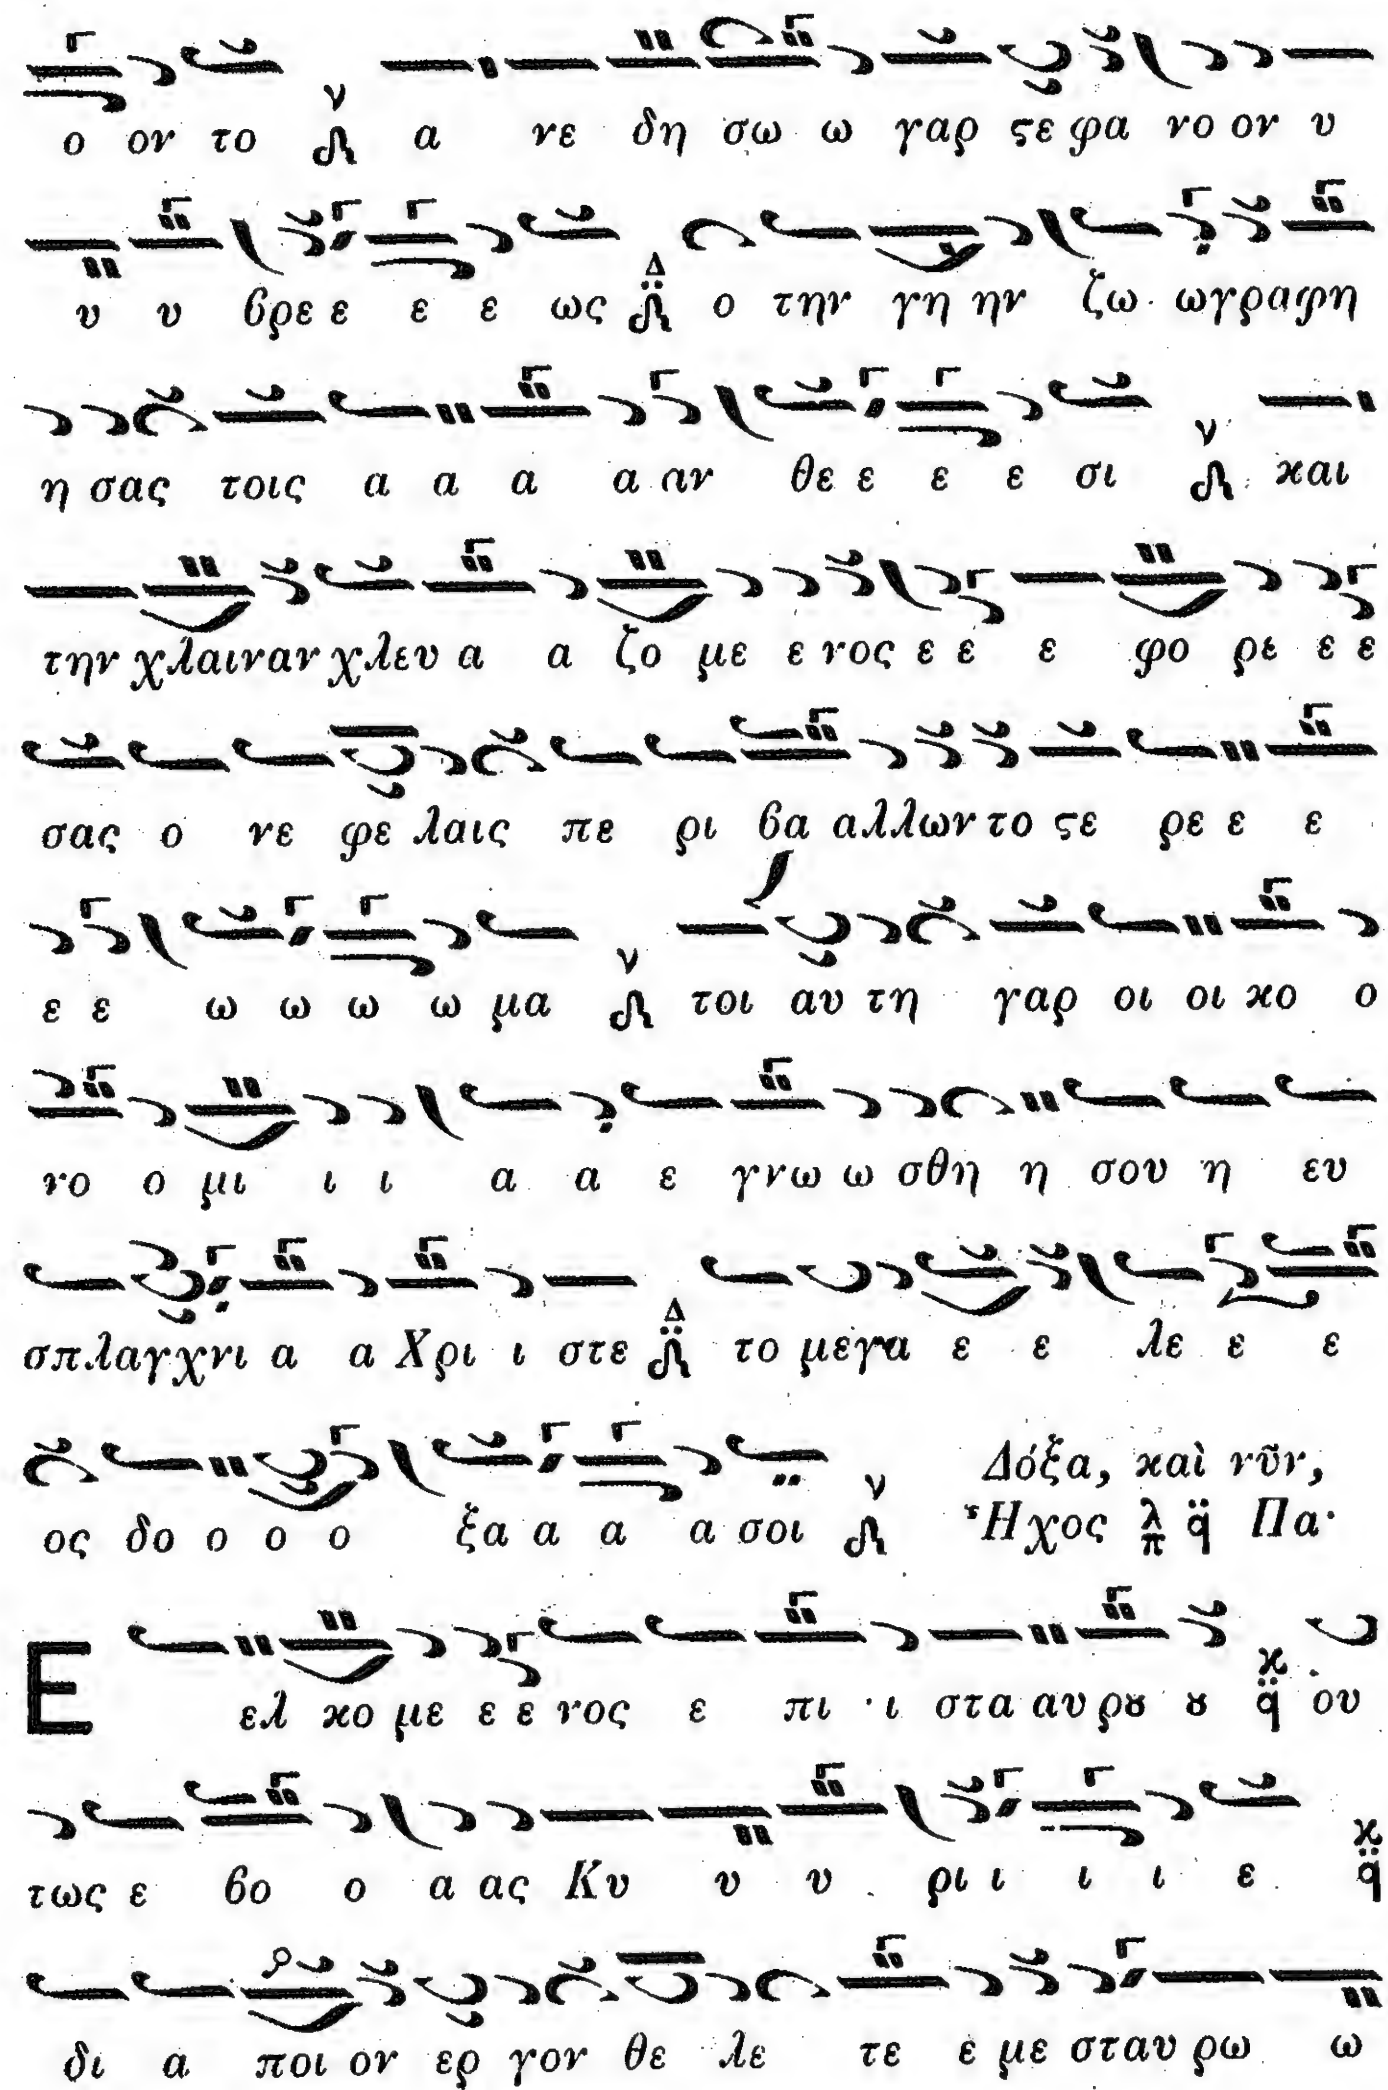 ο ον το ν α νε δη σω ω γαρ ϛε φα νο ον υ
υ υ βρε ε ε ε ως Δ ο την γη ην ζω ωγραφη
η σας τοις α α α α αν θε ε ε ε σι ν και
την χλαιναν χλευ α α ζο με ε νος ε ε ε φο ρε ε ε
σας ο νε φε λαις πε ρι βα αλλων το ϛε ρε ε ε
ε ε ω ω ω ω μα ν τοι αυ τη γαρ οι οι κο ο
νο ο μι ι ι α α ε γνω ω σθη η σου η ευ
σπλαγχνι α α Χρι ι στε Δ το μεγα ε ε λε ε ε
ος δο ο ο ο ξα α α α σοι ν Δόξα, καὶ νῦν,
Ἦχος λ π q̈ Πα·
Ε ελ κο με ε ε νος ε πι ι στα αυ ρȣ ȣ κ q̈ ου
τως ε βο ο α ας Κυ υ υ ρι ι ι ι ε κ q̈
δι α ποι ον ερ γον θε λε τε ε με σταυ ρω ω